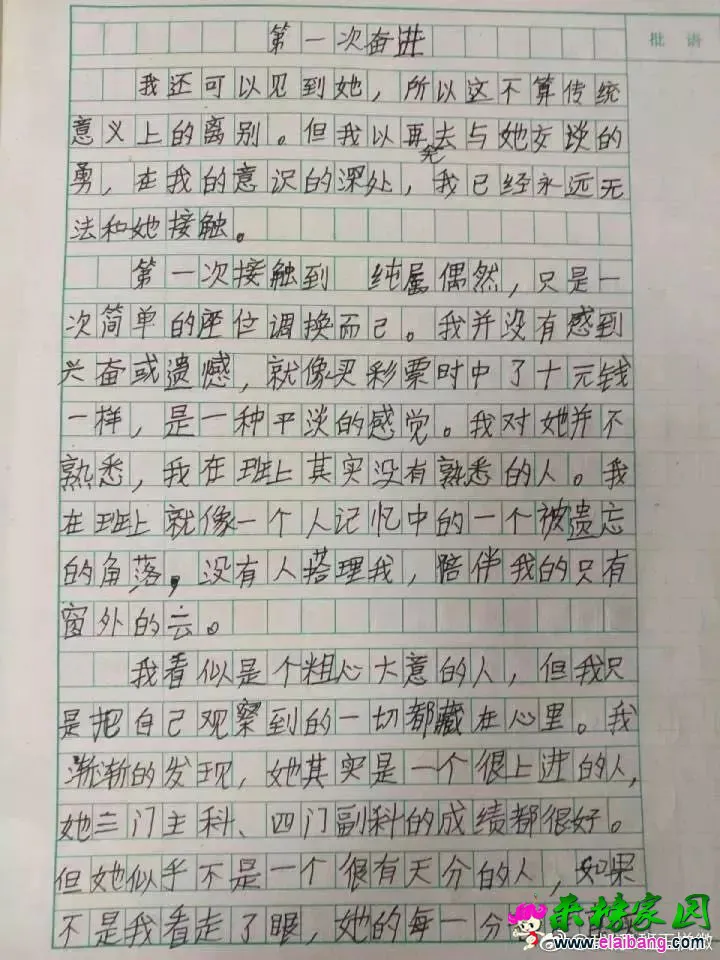 批语
第一次奋进
我还可以见到她，所以这不算传统
意义上的离别。但我以再去与她交谈的
勇，在我的意识的深处，我已经永远无
法和她接触。
第一次接触到 纯属偶然，只是一
次简单的座位调换而已。我并没有感到
兴奋或遗憾，就像买彩票时中了十元钱
一样，是一种平淡的感觉。我对她并不
熟悉，我在班上其实没有熟悉的人。我
在班上就像一个人记忆中的一个被遗忘
的角落，没有人搭理我，陪伴我的只有
窗外的云。
我看似是个粗心大意的人，但我只
是把自己观察到的一切都藏在心里。我
渐渐的发现，她其实是一个很上进的人，
她三门主科、四门副科的成绩都很好。
但她似乎不是一个很有天分的人，如果
不是我看走了眼，她的每一分
www.elaibang.com